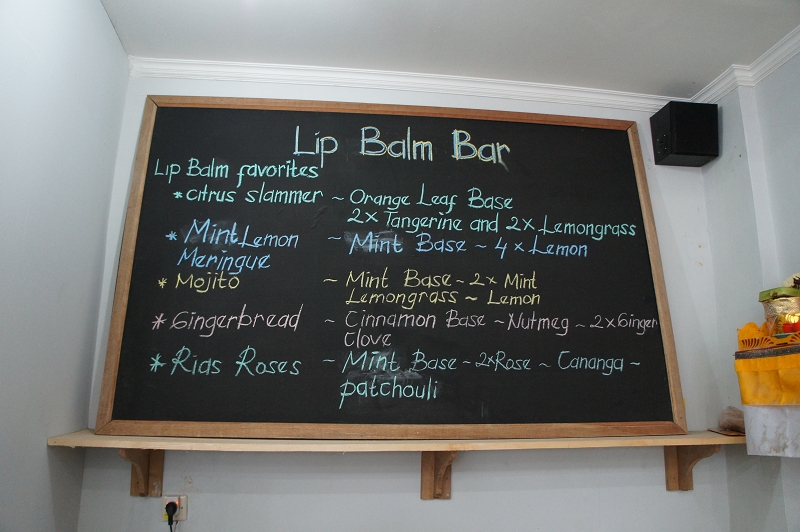 Lip Balm Bar
Lip Balm favorites
* citrus slammer ~ Orange Leaf Base
2x Tangerine and 2x Lemongrass
* Mint Lemon ~ Mint Base ~ 4 x Lemon
Meringue
* Mojito ~ Mint Base ~ 2x Mint
Lemongrass ~ Lemon
* Gingerbread ~ Cinnamon Base ~ Nutmeg ~ 2x Ginger
Clove
* Rias Roses ~ Mint Base ~ 2xRose ~ Cananga ~
patchouli